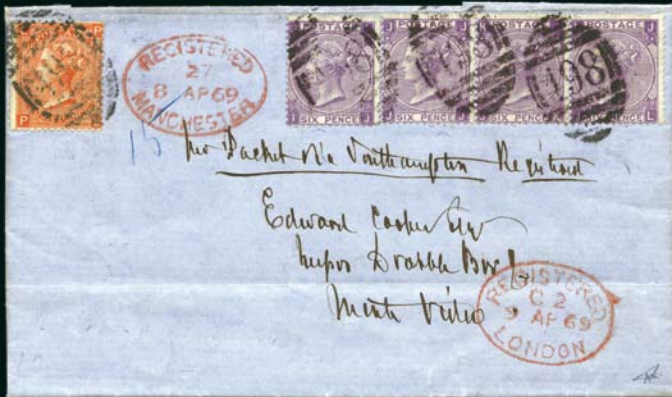 REGISTERED
27
8 AP 69
MANCHESTER
POSTAGE POSTAGE POSTAGE POSTAGE
498
SIX PENCE SIX PENCE
15
Packet Via Southampton Registered
Edward Cooper Esq
Drabble Bros
Monte Video
REGISTERED
C 2
9 AP 69
LONDON